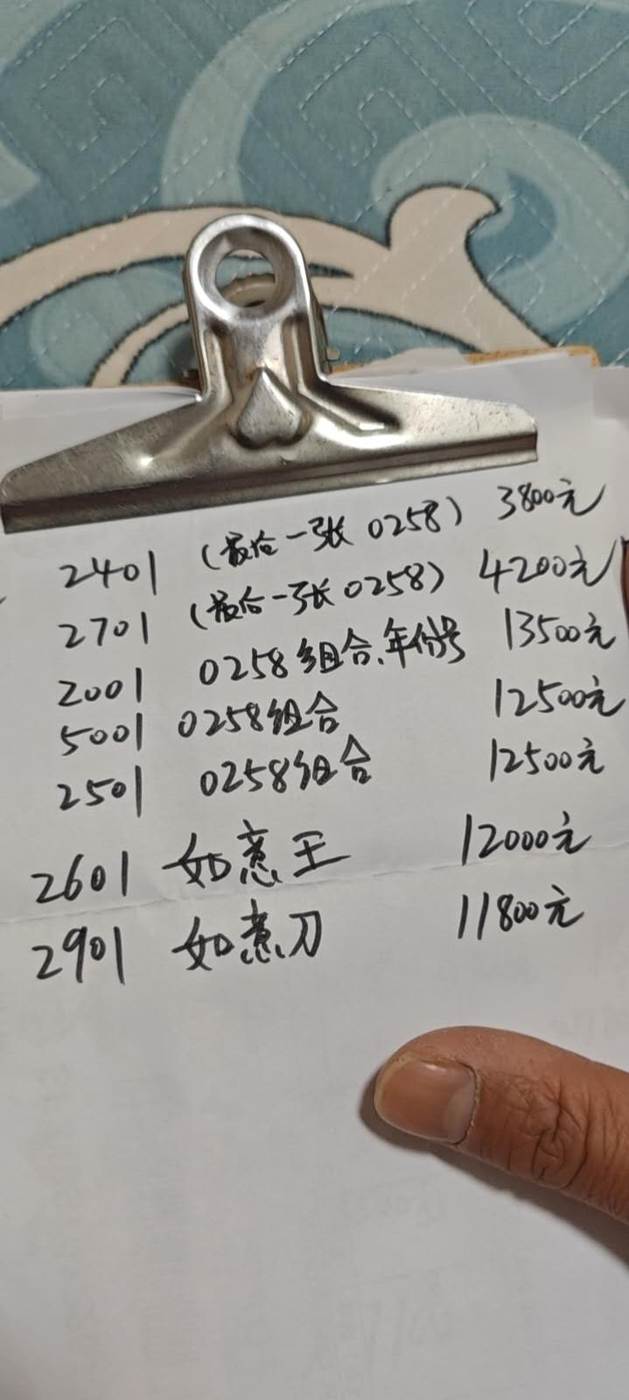 2401 (最后一张 0258) 3800元
2701 (最后一张 0258) 4200元
2001 0258组合、年份号 13500元
5001 0258组合 12500元
2501 0258组合 12500元
2601 如意王 12000元
2901 如意刀 11800元